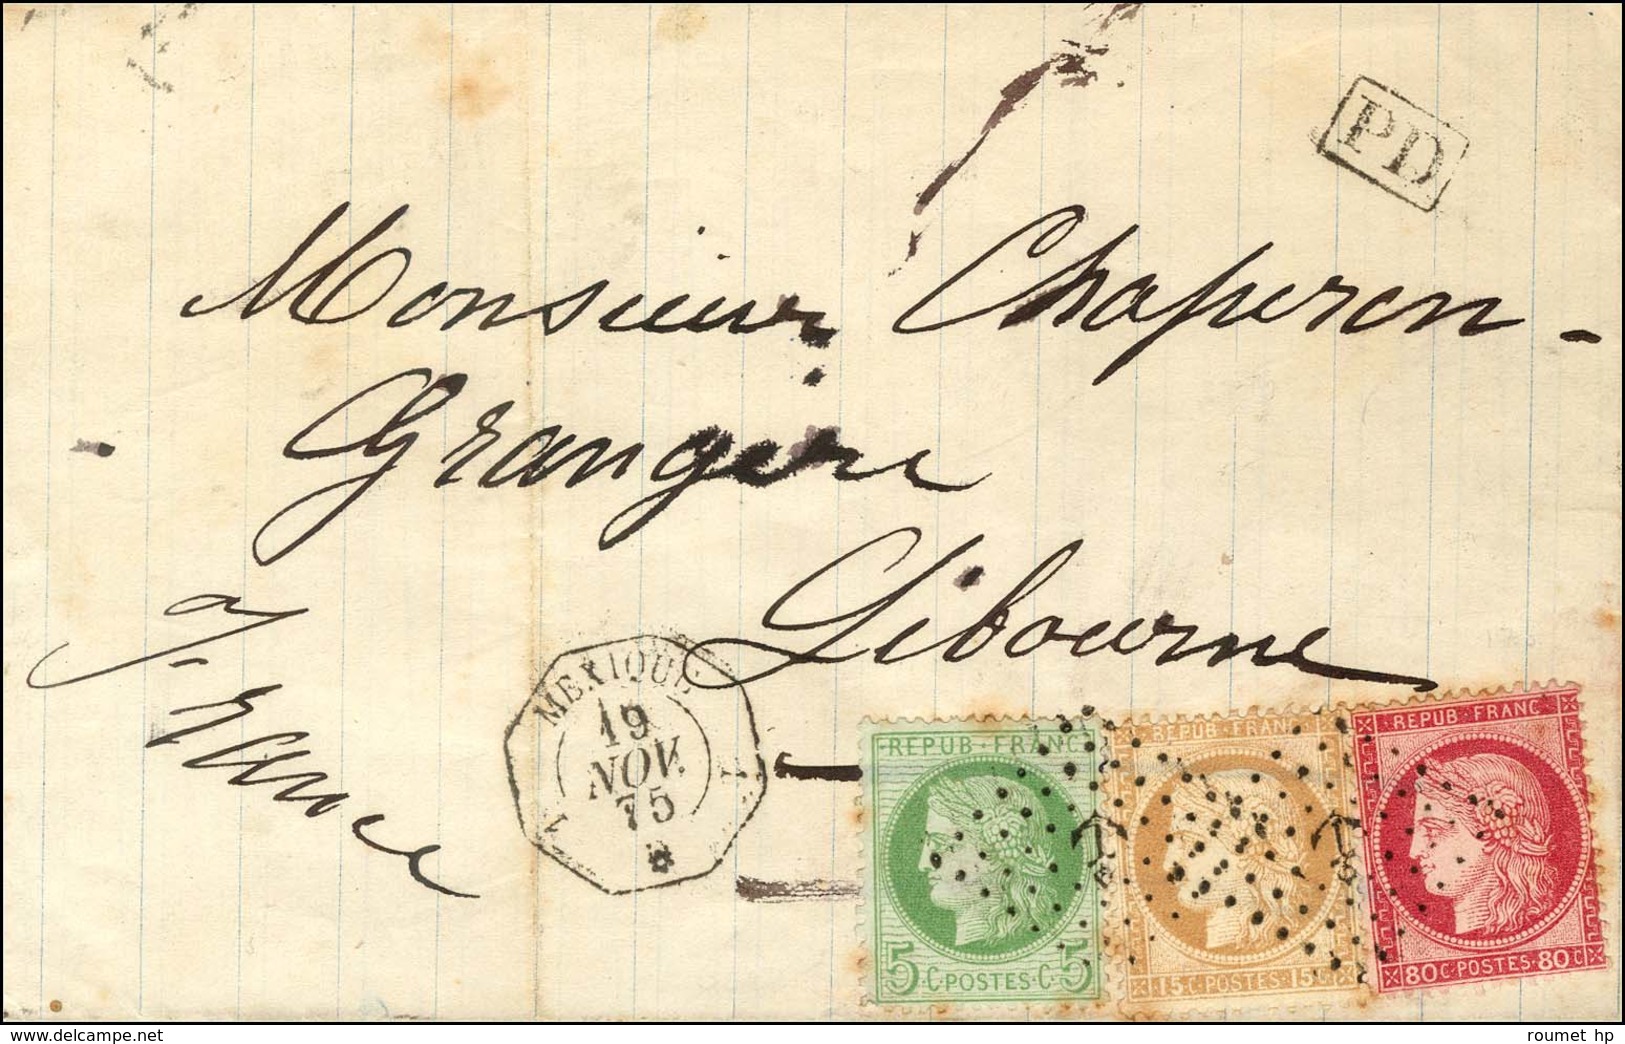 PD
Monsieur Chaperon-
Grangere
Libourne
France
MEXIQUE
19
NOV.
75
REPUB FRANC
5 C POSTES C 5
REPUB FRANC
15 C POSTES 15 C
REPUB FRANC
80 C POSTES 80 C
www.delcampe.net
roumet hp